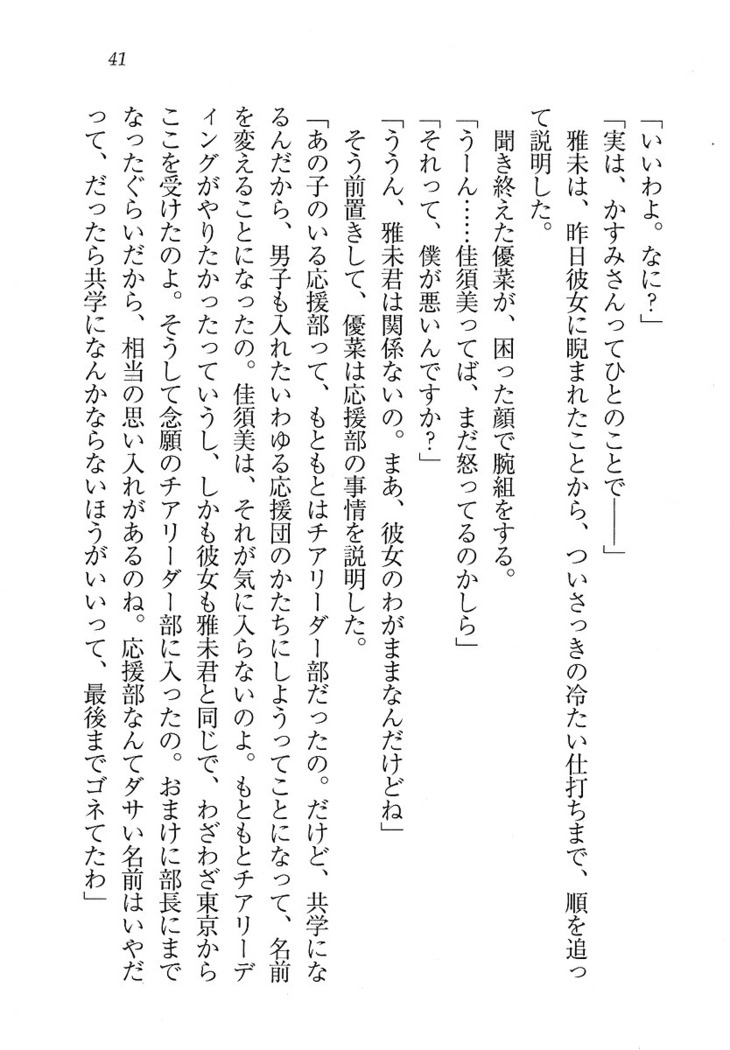 41
「いいわよ。なに？」
「実は、かすみさんってひとのことで――」
　雅未は、昨日彼女に睨まれたことから、ついさっきの冷たい仕打ちまで、順を追っ
て説明した。
　聞き終えた優菜が、困った顔で腕組をする。
「うーん……佳須美ってば、まだ怒ってるのかしら」
「それって、僕が悪いんですか？」
「ううん、雅未君は関係ないの。まあ、彼女のわがままなんだけどね」
　そう前置きして、優菜は応援部の事情を説明した。
「あの子のいる応援部って、もともとはチアリーダー部だったの。だけど、共学にな
るんだから、男子も入れたいわゆる応援団のかたちにしようってことになって、名前
を変えることになったの。佳須美は、それが気に入らないのよ。もともとチアリーデ
ィングがやりたかったっていうし、しかも彼女も雅未君と同じで、わざわざ東京から
ここを受けたのよ。そうして念願のチアリーダー部に入ったの。おまけに部長にまで
なったぐらいだから、相当の思い入れがあるのね。応援部なんてダサい名前はいやだ
って、だったら共学になんかならないほうがいいって、最後までゴネてたわ」